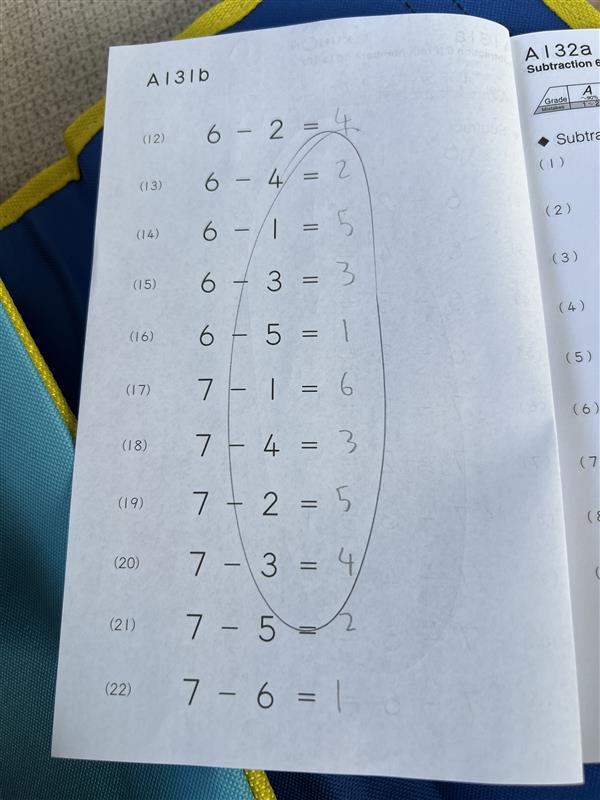 A131b
(12) 6 - 2 = 4
(13) 6 - 4 = 2
(14) 6 - 1 = 5
(15) 6 - 3 = 3
(16) 6 - 5 = 1
(17) 7 - 1 = 6
(18) 7 - 4 = 3
(19) 7 - 2 = 5
(20) 7 - 3 = 4
(21) 7 - 5 = 2
(22) 7 - 6 = 1
A132a
Subtraction 6
Grade A
Mistakes
◆ Subtra
(1)
(2)
(3)
(4)
(5)
(6)
(7
(8